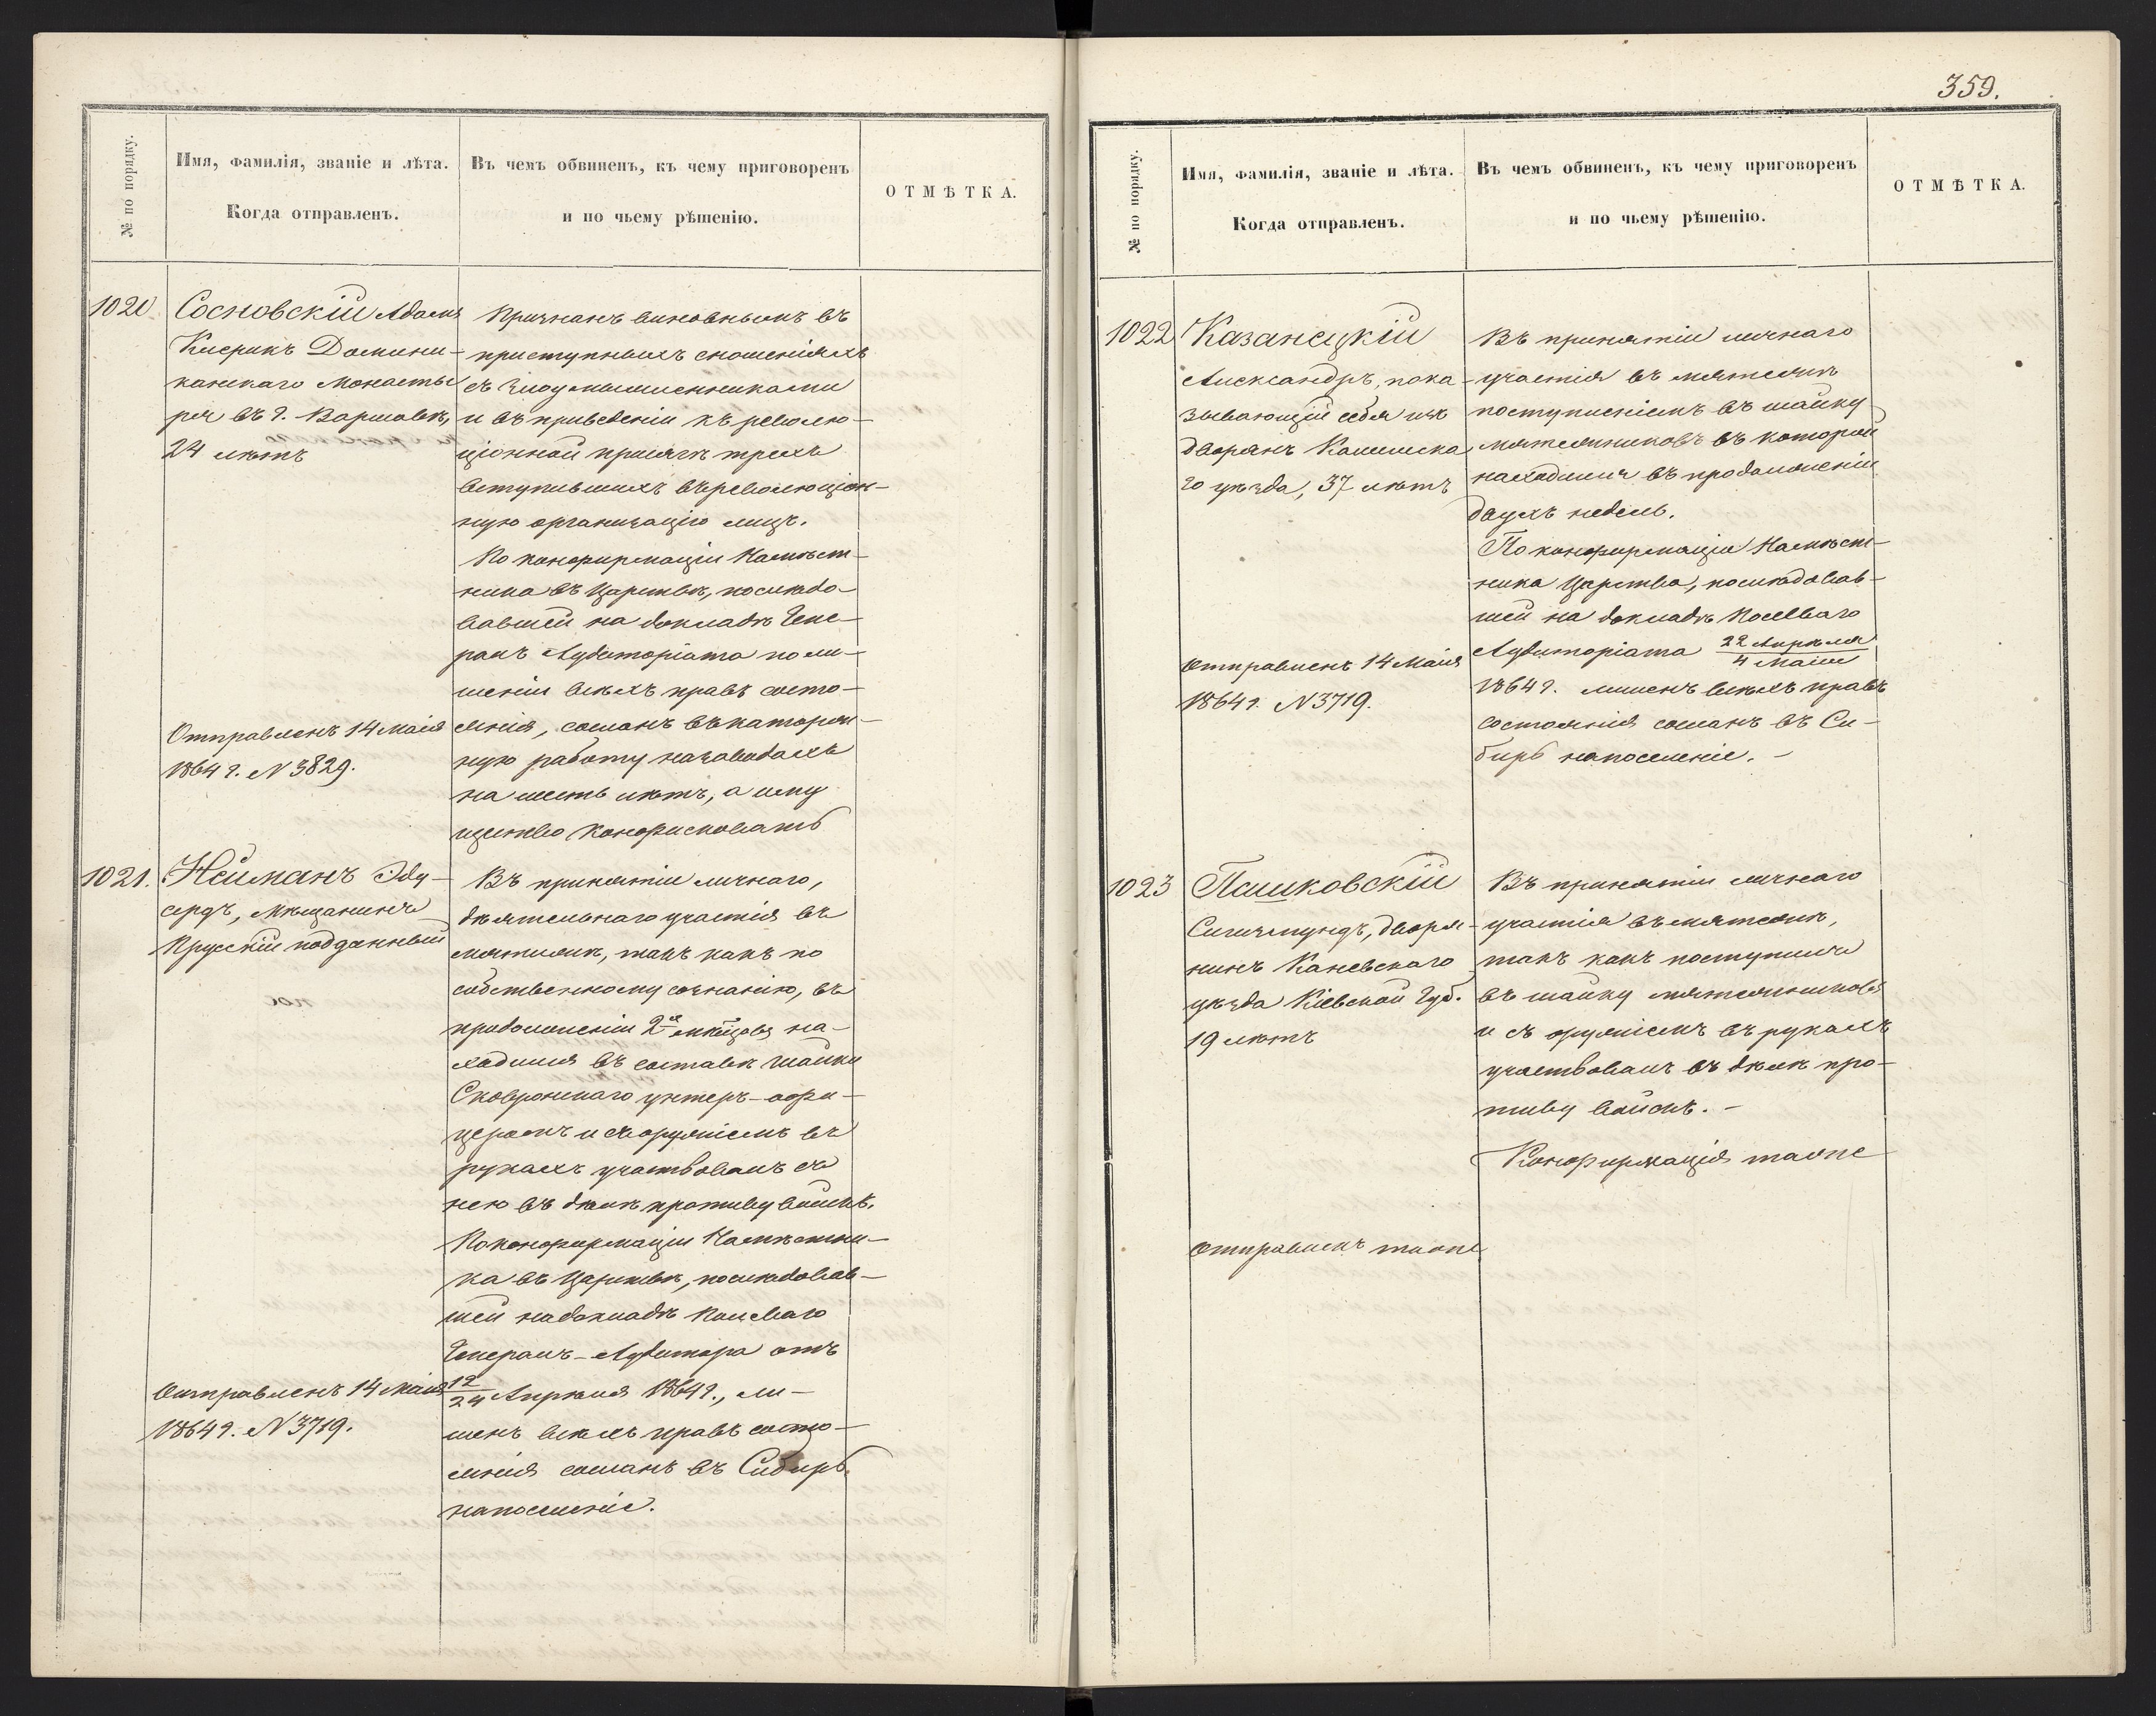 359.
№ по порядку.
Имя, фамилія, званіе и лѣта.
Когда отправленъ.
Въ чемъ обвиненъ, къ чему приговоренъ
и по чьему рѣшенію.
ОТМѢТКА.
1020
Сосновскій Адамъ
Клерикъ Домини-
канскаго Монасты
ря въ г. Варшавѣ,
24 лѣтъ
Отправленъ 14 Маія
1864 г. N 3829.
Признанъ виновнымъ въ
приступныхъ сношеніяхъ
съ злоумышленниками
и въ приведеніи къ револю-
ціонной присягѣ трехъ
вступившихъ въ революціон-
ную организацію лицъ.
По конфирмаціи Намѣст-
ника въ Царствѣ, послѣдо-
вавшей на докладѣ Гене-
ралъ Аудиторіата по ли-
шеніи всѣхъ правъ состо-
янія, сосланъ въ каторж-
ную работу на заводахъ
на шесть лѣтъ, а иму
щество конфисковать
1021.
Нейманъ Эду-
ардъ, Мѣщанинъ
Прусскій подданный
Отправленъ 14 Маія
1864 г. N 3719.
Въ принятіи личнаго,
дѣятельнаго участія въ
мятежѣ, такъ какъ по
собственному сознанію, въ
продолженіи 2х мѣсяцовъ на-
ходился въ составѣ шайки
Сковронскаго унтеръ-офи-
церомъ и съ оружіемъ въ
рукахъ участвовалъ съ
нею въ дѣлѣ противу войскъ.
По конфирмаціи Намѣстни-
ка въ Царствѣ, послѣдовав-
шей на докладѣ Полеваго
Генералъ-Аудитора отъ
12/24 Апрѣля 1864 г., ли-
шенъ всѣхъ правъ состо-
янія сосланъ въ Сибирь
на поселеніе.
№ по порядку.
Имя, фамилія, званіе и лѣта.
Когда отправленъ.
Въ чемъ обвиненъ, къ чему приговоренъ
и по чьему рѣшенію.
ОТМѢТКА.
1022
Казанецкій
Александръ, пока-
зывающій себя изъ
дворянъ
го уѣзда, 37 лѣтъ
Отправленъ 14 Маія
1864 г. N 3719.
Въ принятіи личнаго
участія въ мятежѣ
поступленіемъ въ шайку
мятежниковъ въ которой
находился въ продолженіи
двухъ недель.
По конфирмаціи Намѣст-
ника Царства, послѣдовав-
шей на докладѣ Полеваго
Аудиторіата 22 Апрѣля/4 Маія
1864 г. лишенъ всѣхъ правъ
состоянія сосланъ въ Си-
бирь на поселеніе. -
1023
Пашковскій
Сигизмундъ, дворя-
нинъ Каневскаго
уѣзда Кіевской Губ.
19 лѣтъ
Отправленъ тоже
Въ принятіи личнаго
участія въ мятежѣ,
такъ какъ поступилъ
въ шайку мятежниковъ
и съ оружіемъ въ рукахъ
участвовалъ въ дѣлѣ про-
тиву войскъ. -
Конфирмація таже